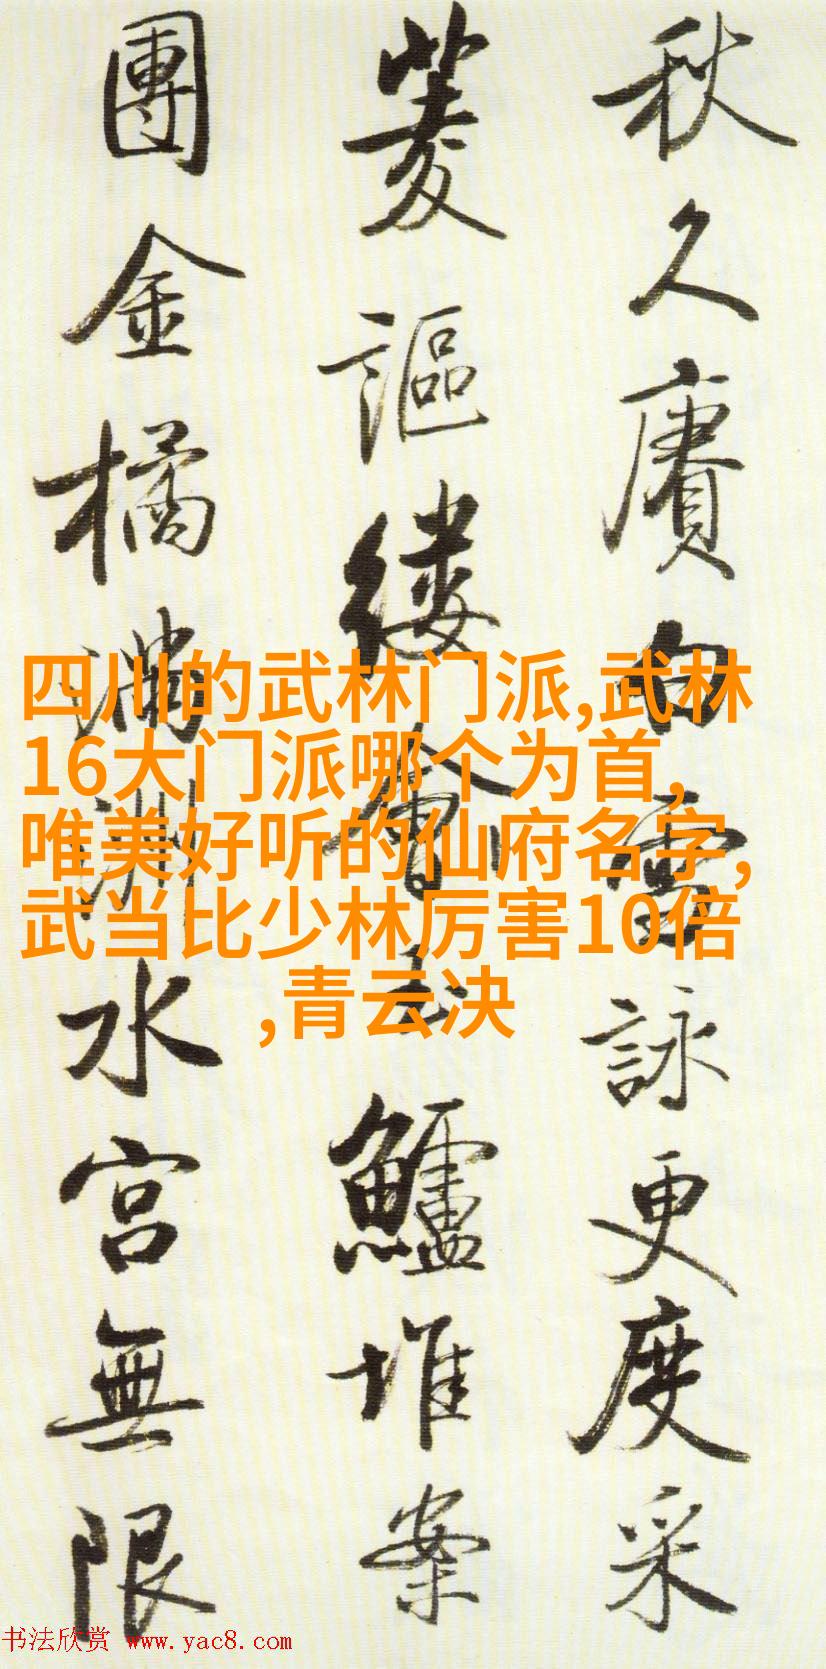 秋久賡白雪詠更度采
菱謳縷會玉鱸堆案
團金橘滿洲水宮無限
四川的武林门派,武林
16大门派哪个为首,
唯美好听的仙府名字,
武当比少林厉害10倍
,青云决
书法欣赏 www.yac8.com